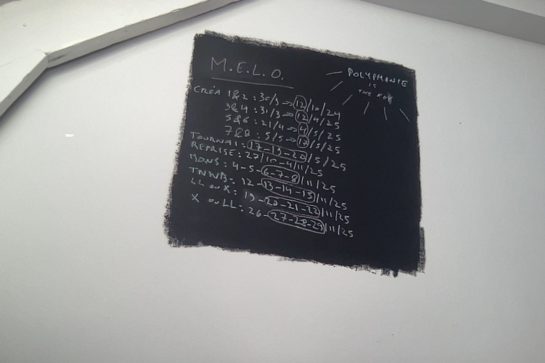 M.E.L.O.
POLYPHONIE
IS
THE KEY
CRÉA 1&2 : 30/3 => 12/10/24
3&4 : 31/3 => 12/4/25
5&6 : 21/4 => 4/5/25
7&8 : 5/5 => /5/25
TOURNAI : 17-19-20/5/25
REPRISE : 27/10-4/11/25
MONS : 4-5-6-7-8/11/25
TNWB : 12-13-14-15/11/25
LL ou X : 19-20-21-22/11/25
X ou LL : 26-27-28-29/11/25